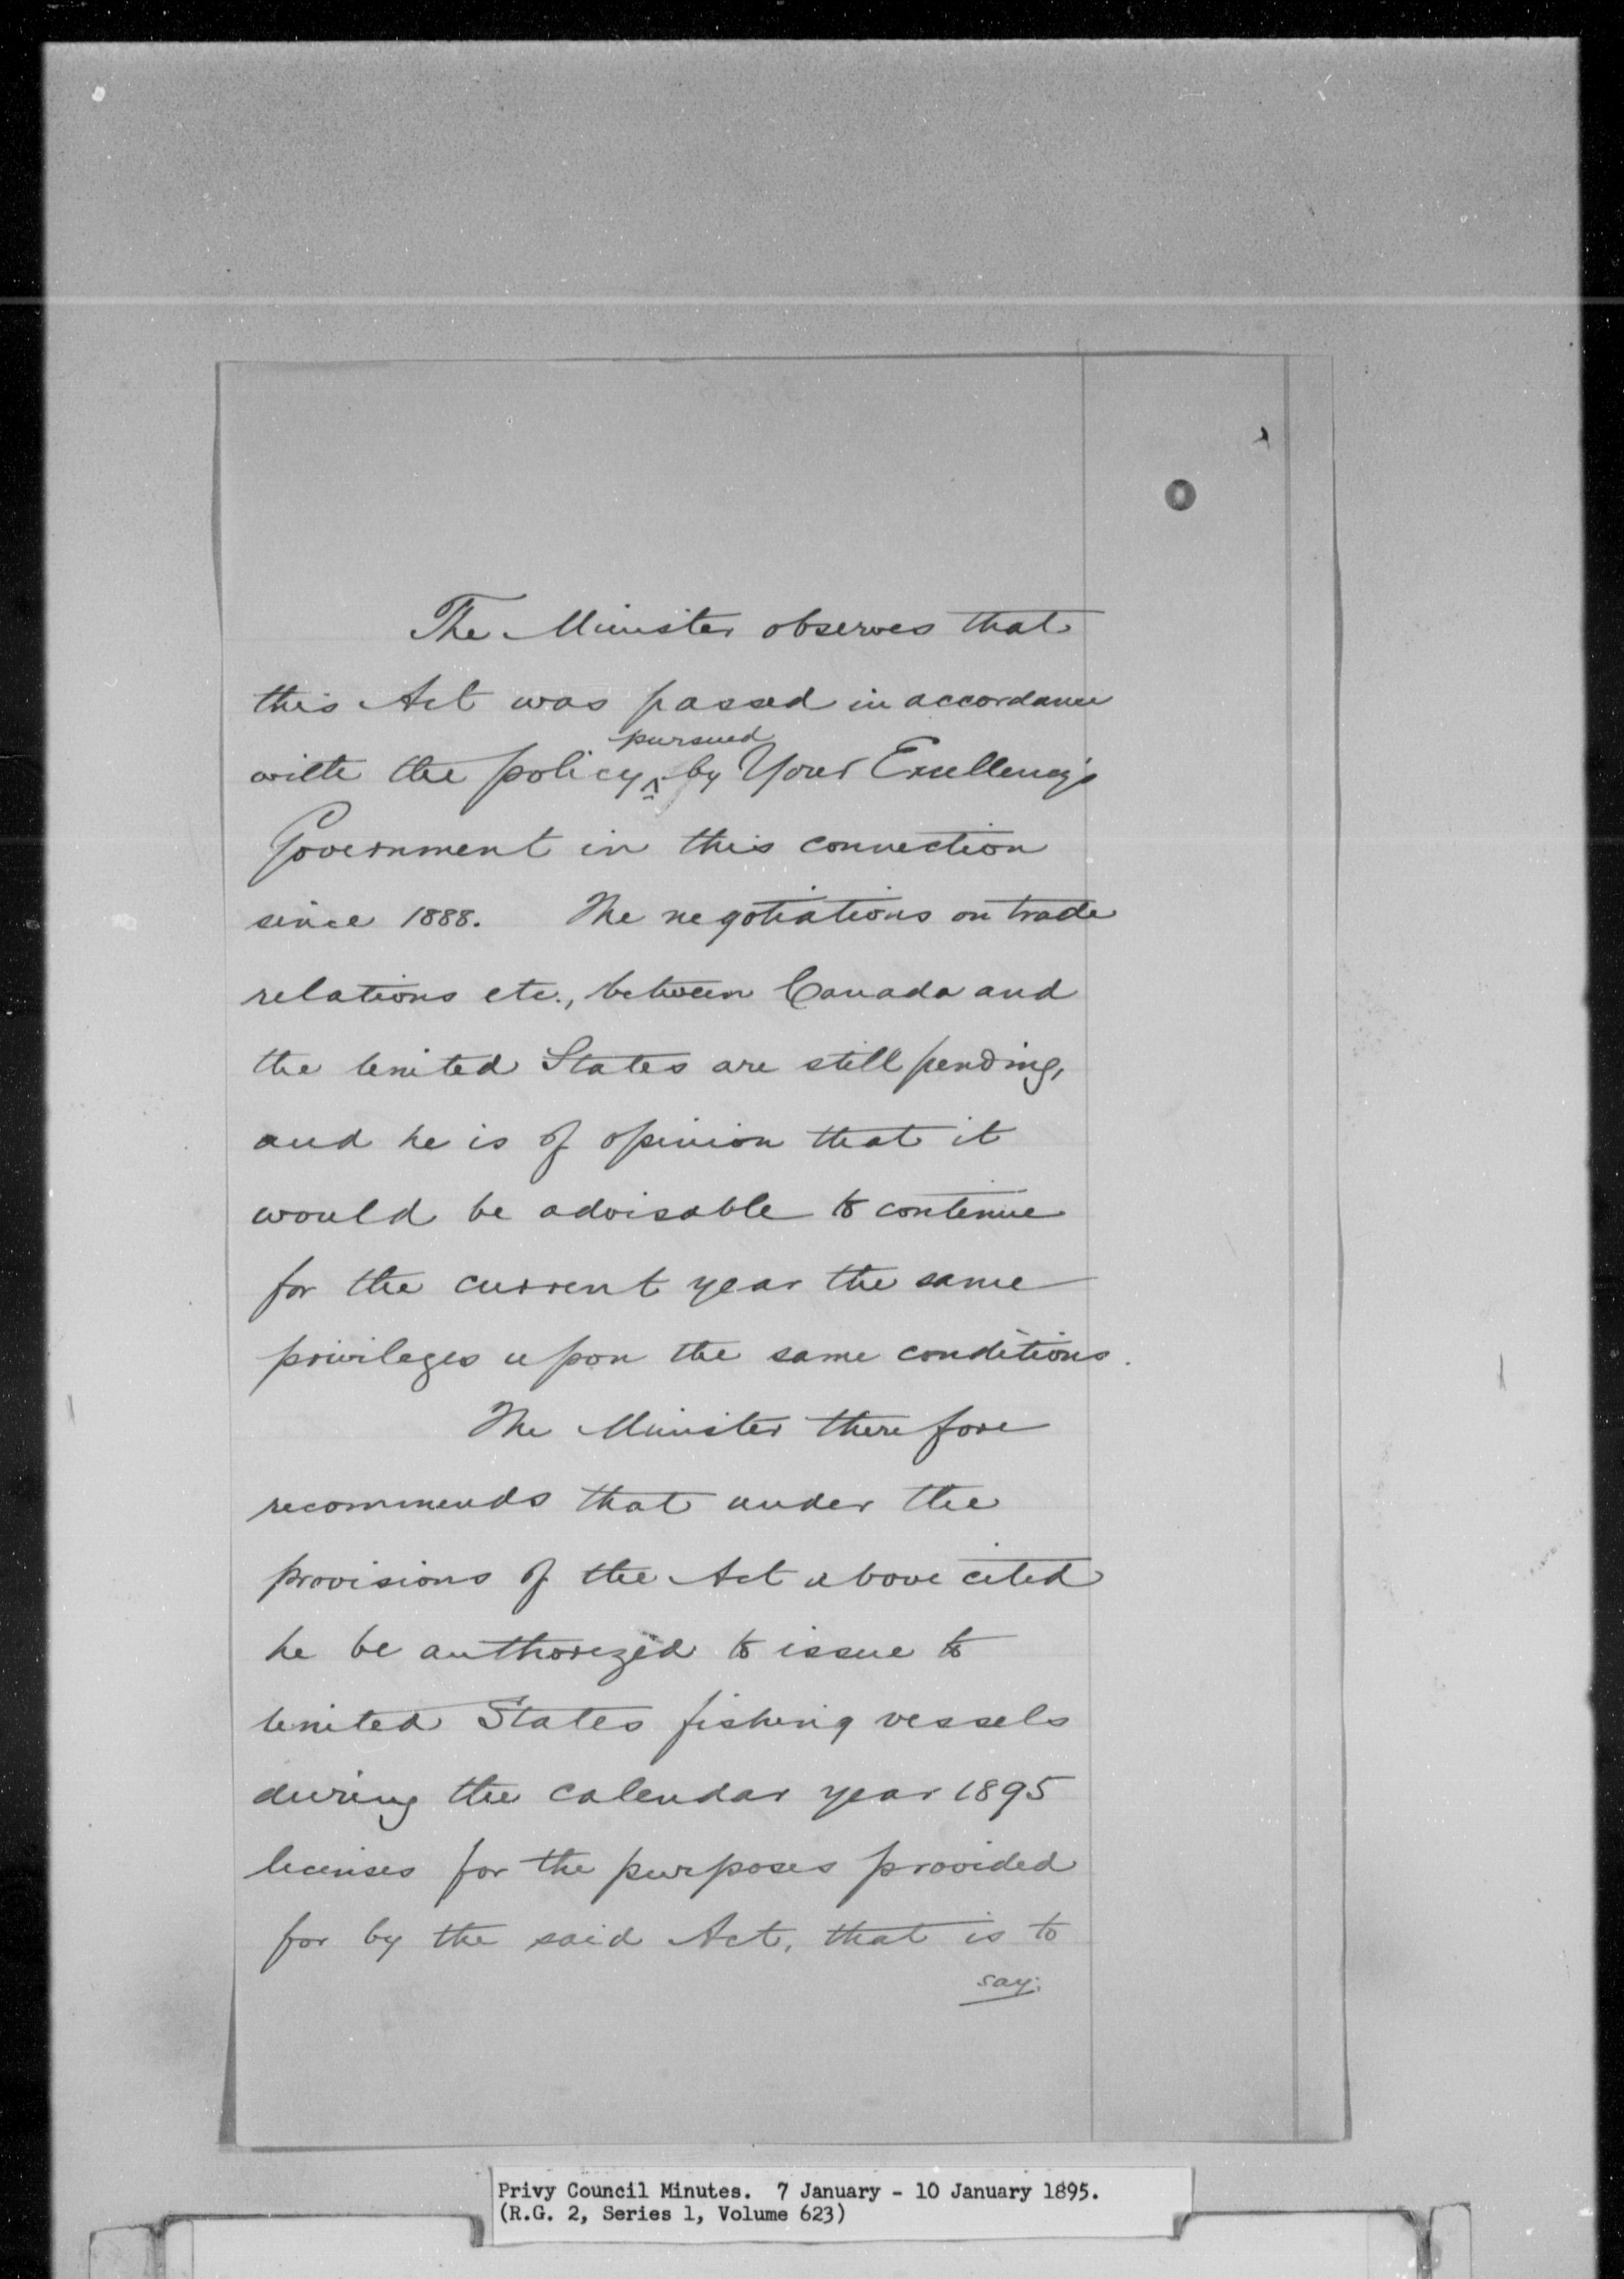 The Minister observes that
this Act was passed in accordance
with the policy pursued by Your Excellency's
Government in this connection
since 1888. The negotiations on trade
relations etc., between Canada and
the United States are still pending,
and he is of opinion that it
would be advisable to continue
for the current year the same
privileges upon the same conditions.
The Minister therefore
recommends that under the
provisions of the Act above cited
he be authorized to issue to
United States fishing vessels
during the calendar year 1895
licenses for the purposes provided
for by the said Act, that is to
say:
Privy Council Minutes. 7 January - 10 January 1895.
(R.G. 2, Series 1, Volume 623)